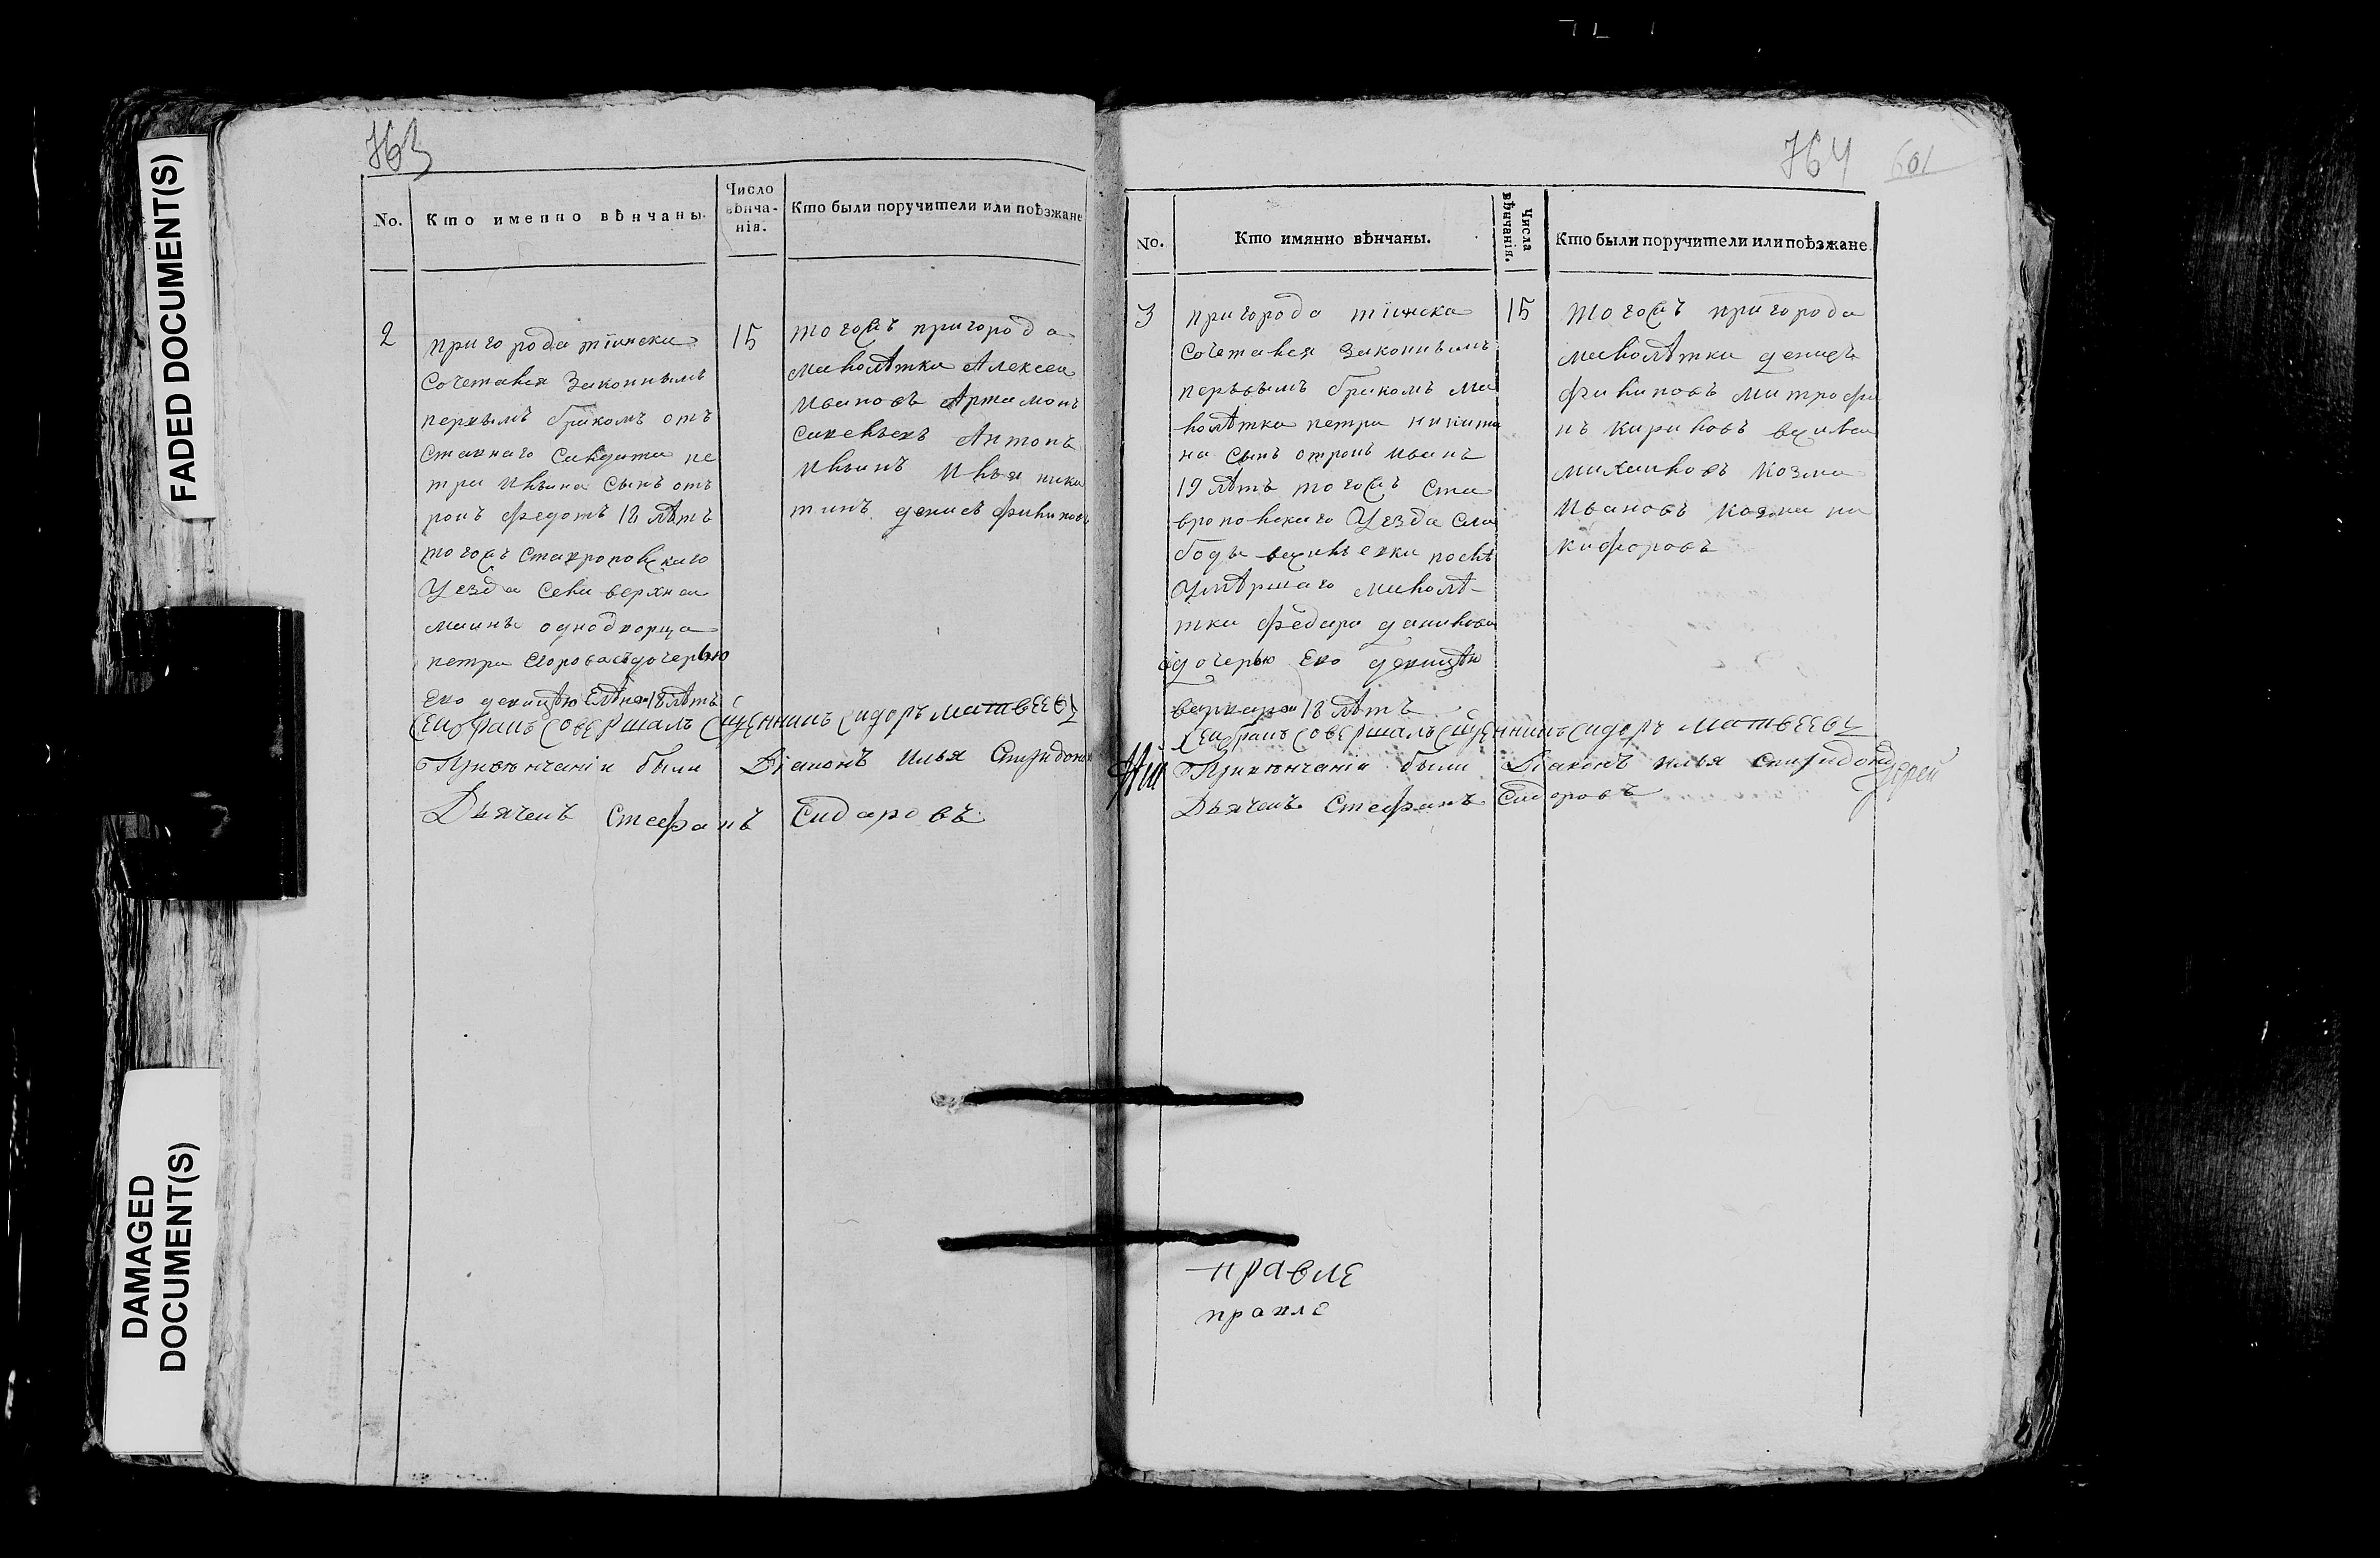 FADED DOCUMENT(S)
DAMAGED
DOCUMENT(S)
763
No.
Кто именно вѣнчаны.
Число
вѣнча-
нія.
Кто были поручители или поѣзжане
2
пригорода тіинска
Сочетався Законнымъ
первымъ бракомъ отъ
ставнаго Салдата пе
тра Ильина Сынъ от
рокъ Федотъ 18 лѣтъ
тогожъ Ставрополскаго
Уезда Села верхнеи
маины однодворца
петра Егорова здочерью
Ево девицѣю Еленои 18 лѣтъ
15
тогожъ пригорода
малолѣтки Алексеи
Ивановъ Артамонъ
Савельевъ Антонъ
Ильинъ Илья ники
тинъ денисъ филиповъ
Сеи бракъ Совершалъ Сщенникъ Сидоръ Матвеевъ
При венчаніи были Діаконъ Илья Спиридоновъ
Дьячекъ Стефанъ Сидаровъ
764
601
No.
Кто имянно вѣнчаны.
Числа
вѣнчанія.
Кто были поручители или поѣзжане
3
пригорода тіинска
Сочетався Законнымъ
первымъ бракомъ ма
лолѣтка петра никити
на Сынъ отрокъ Иванъ
19 лѣтъ тогожъ Ста
врополскаго Уезда Сло
боды василъевки послѣ
Умѣршаго малолѣ-
тка Федара данилова
здочерью Ево девицѣю
варварои 18 лѣтъ
15
тогожъ пригорода
малолѣтки денисъ
Филиповъ митрофа
нъ Кириловъ василеи
михаиловъ Козма
Ивановъ Козма ни
кифоровъ
Сеи бракъ Совершалъ Сщенникъ Сидоръ Матвеевъ
При венчаніи были Діаконъ илья Спиридоно
Дьячекъ Стефанъ Сидоровъ
Іерей